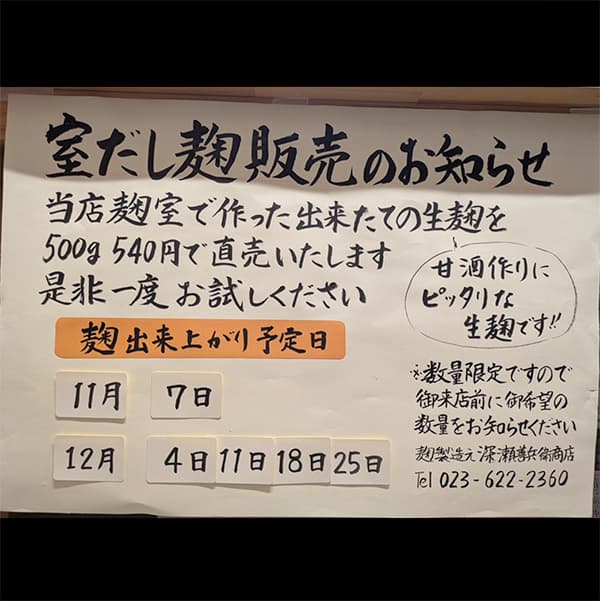 室だし麹販売のお知らせ
当店麹室で作った出来たての生麹を
500g 540円で直売いたします
是非一度お試しください
甘酒作りに
ピッタリな
生麹です!!
麹出来上がり予定日
11月 7日
12月 4日 11日 18日 25日
※数量限定ですので
御来店前に御希望の
数量をお知らせください
麹製造元 深瀬善兵衛商店
Tel 023-622-2360